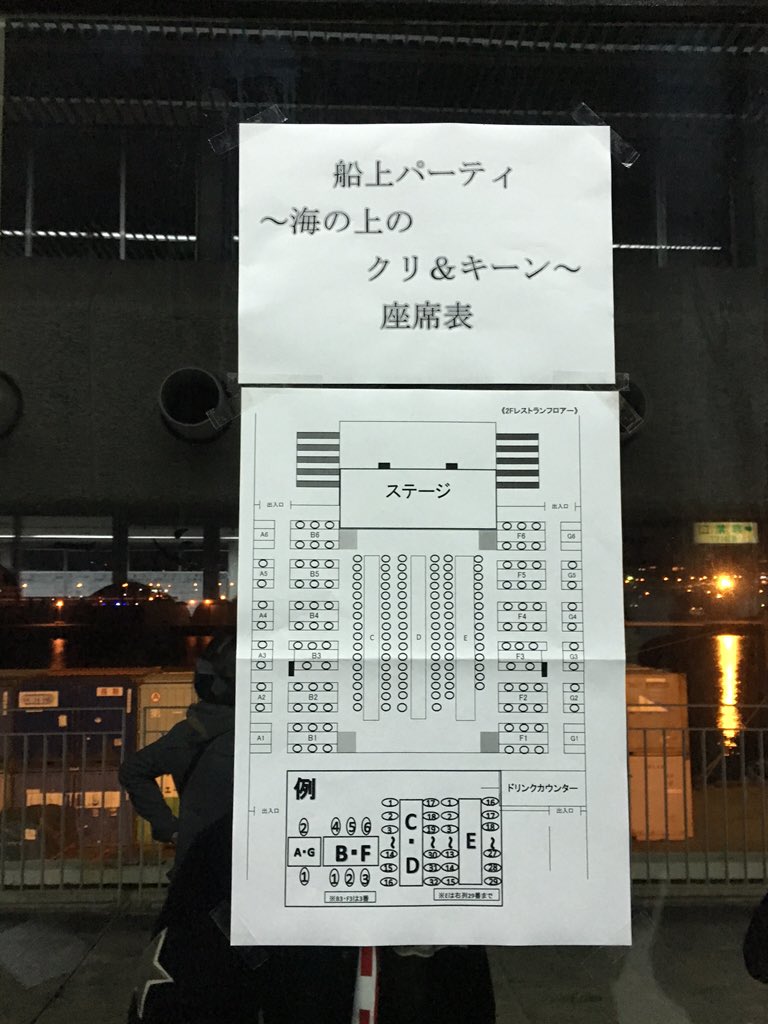 船上パーティ
～海の上の
クリ＆キーン～
座席表
《2Fレストランフロアー》
ステージ
出入口
出入口
A6 B6 F6 G6
A5 B5 F5 G5
A4 B4 F4 G4
C D E
A3 B3 F3 G3
A2 B2 F2 G2
A1 B1 F1 G1
ドリンクカウンター
出入口
出入口
例
② ④⑤⑥
A・G B・F
① ①②③
C・D
E
※B3・F3は3番
※Eは右列29番まで